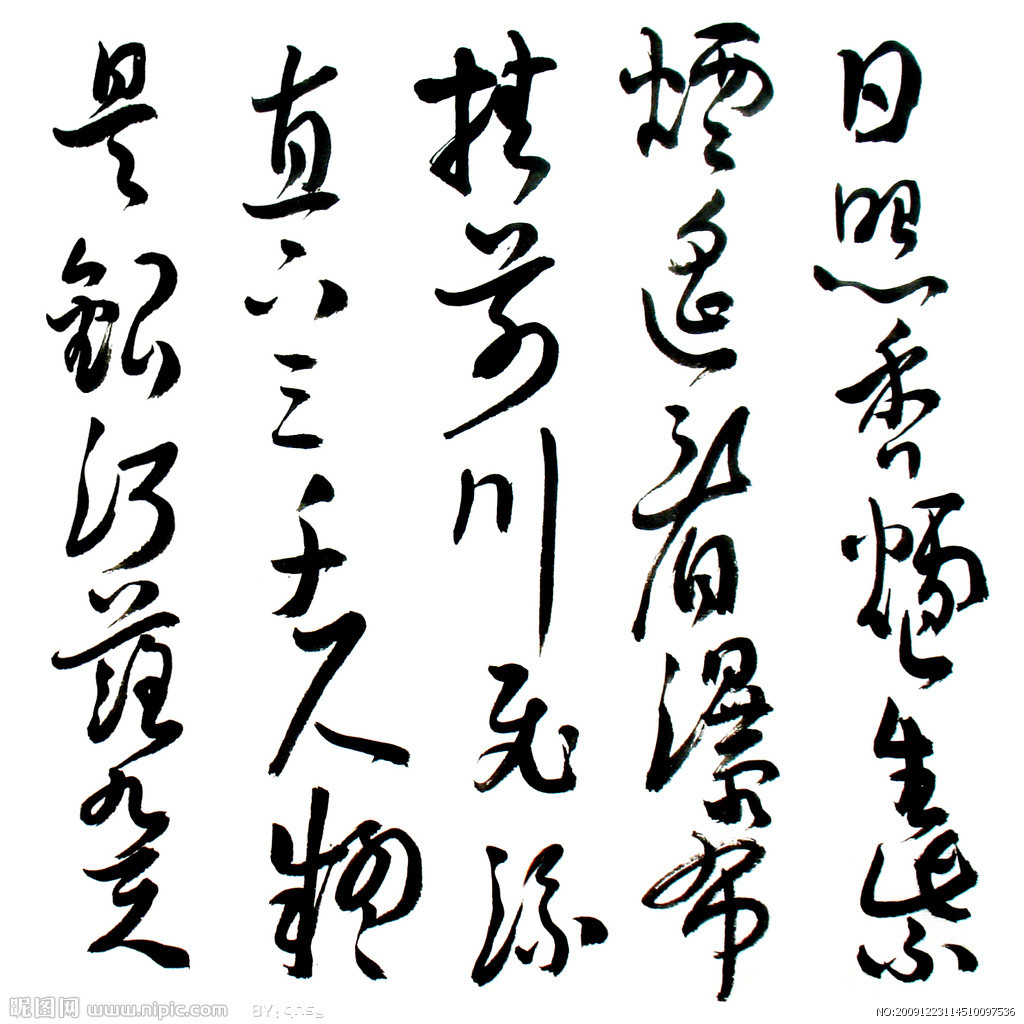 日照香爐生紫
煙遙看瀑布
挂前川飛流
直下三千尺疑
是銀河落九天
昵图网 www.nipic.com BY:
NO:20091223114510097536